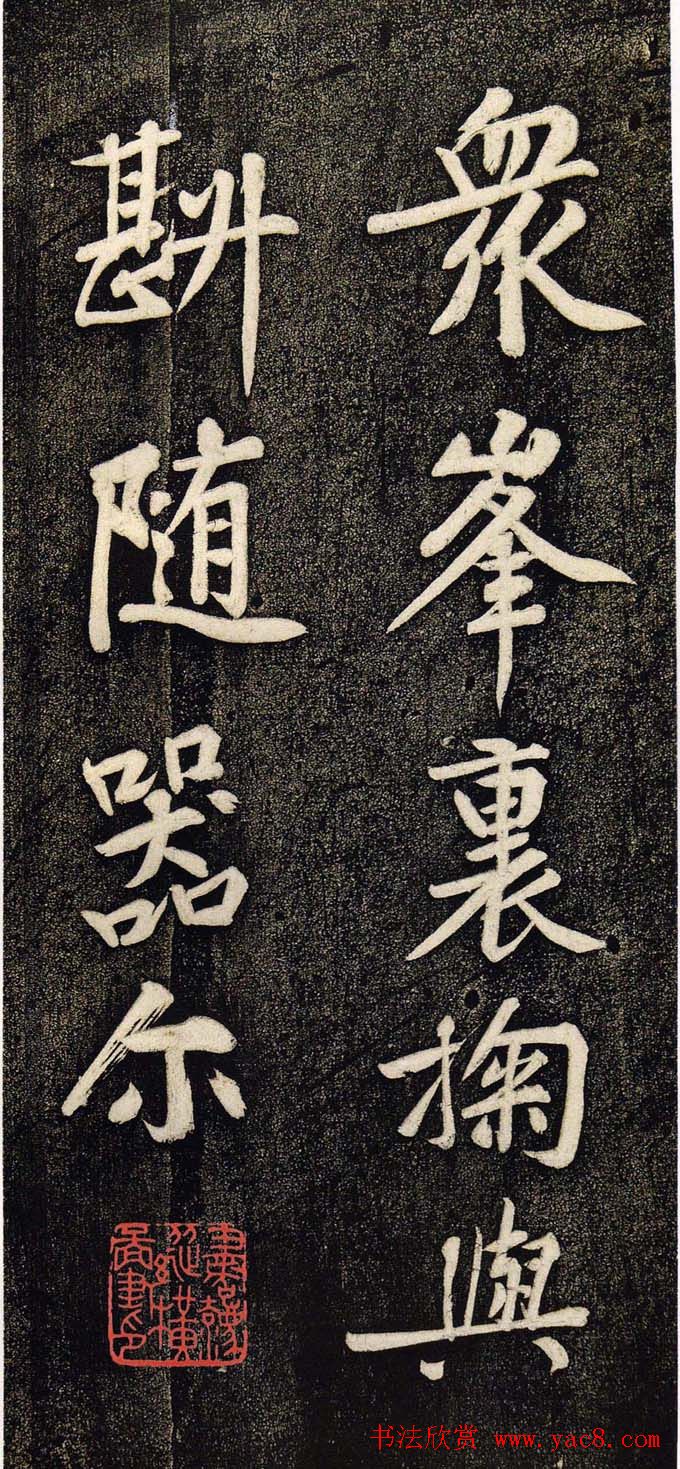 衆峯裏掬與
斟随器尔
书法欣赏 www.yac8.com